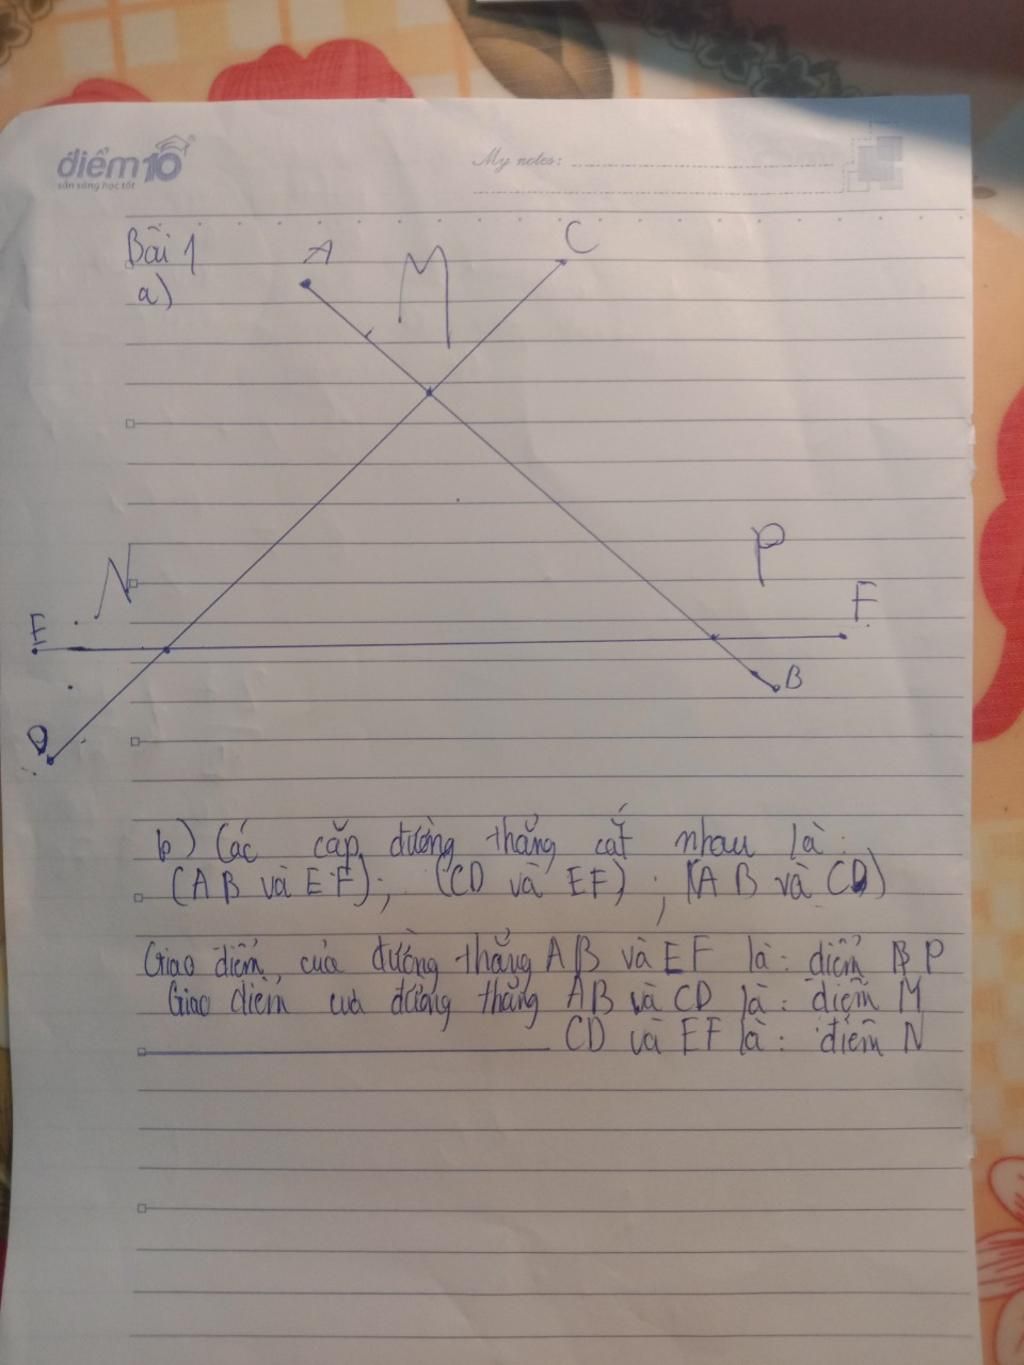 điểm10
sẵn sàng học tốt
My notes:
Bài 1
a)
A
M
C
N
P
E
F
B
D
b) Các cặp đường thẳng cắt nhau là:
(AB và EF); (CD và EF); (AB và CD)
Giao điểm của đường thẳng AB và EF là: điểm P
Giao điểm của đường thẳng AB và CD là: điểm M
CD và EF là: điểm N